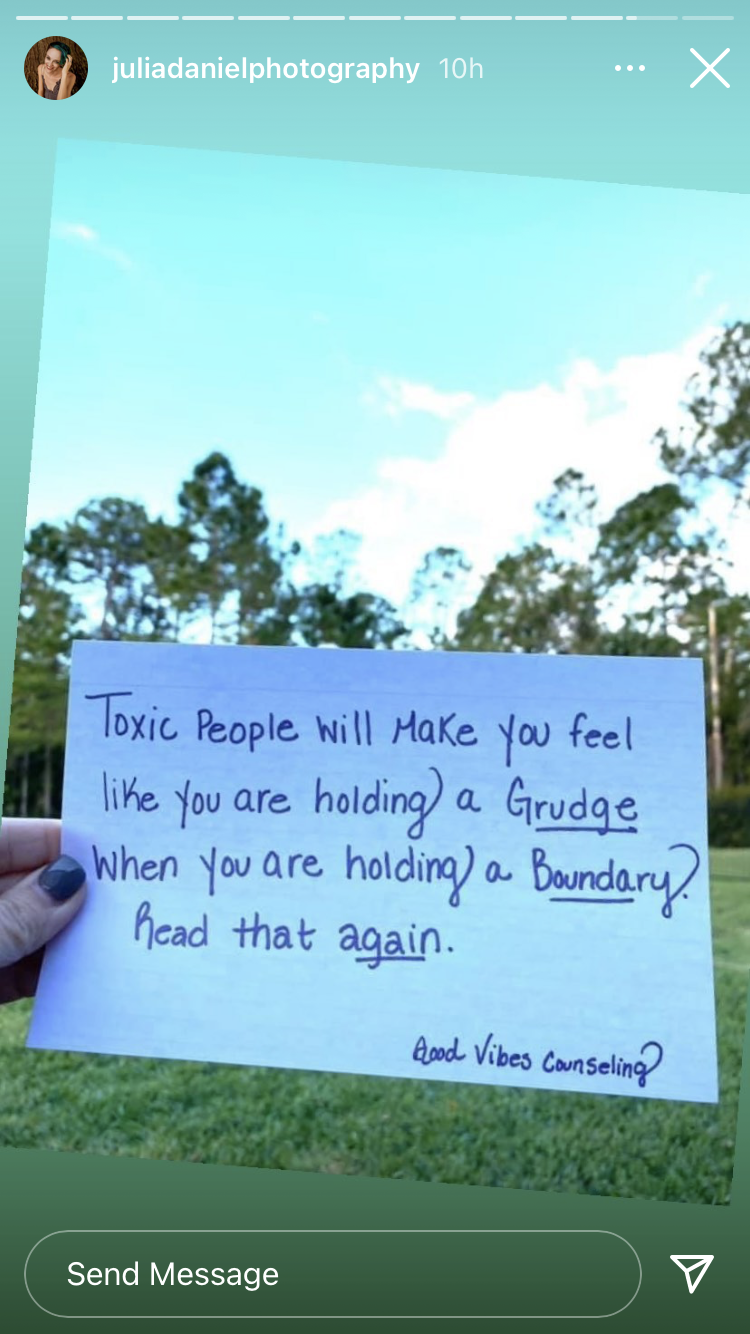 juliadanielphotography 10h
Toxic People will Make you feel
like you are holding a Grudge
when you are holding a Boundary.
Read that again.
Good Vibes Counseling
Send Message